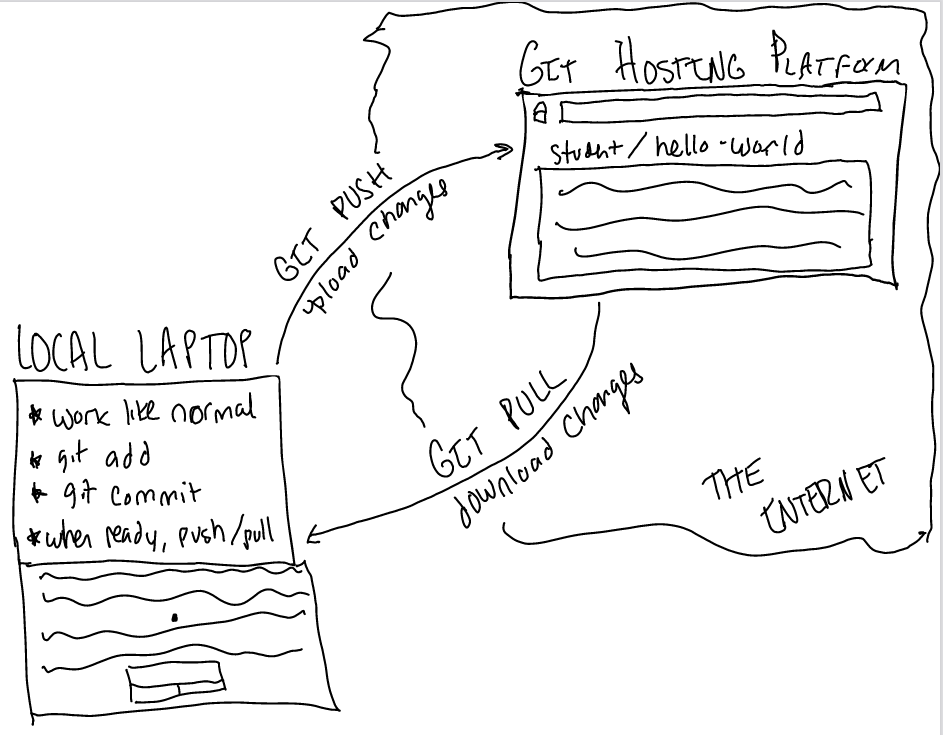 GIT HOSTING PLATFORM
student/hello-world
GIT PUSH
upload changes
LOCAL LAPTOP
* work like normal
* git add
* git commit
* when ready, push/pull
GIT PULL
download changes
THE
INTERNET